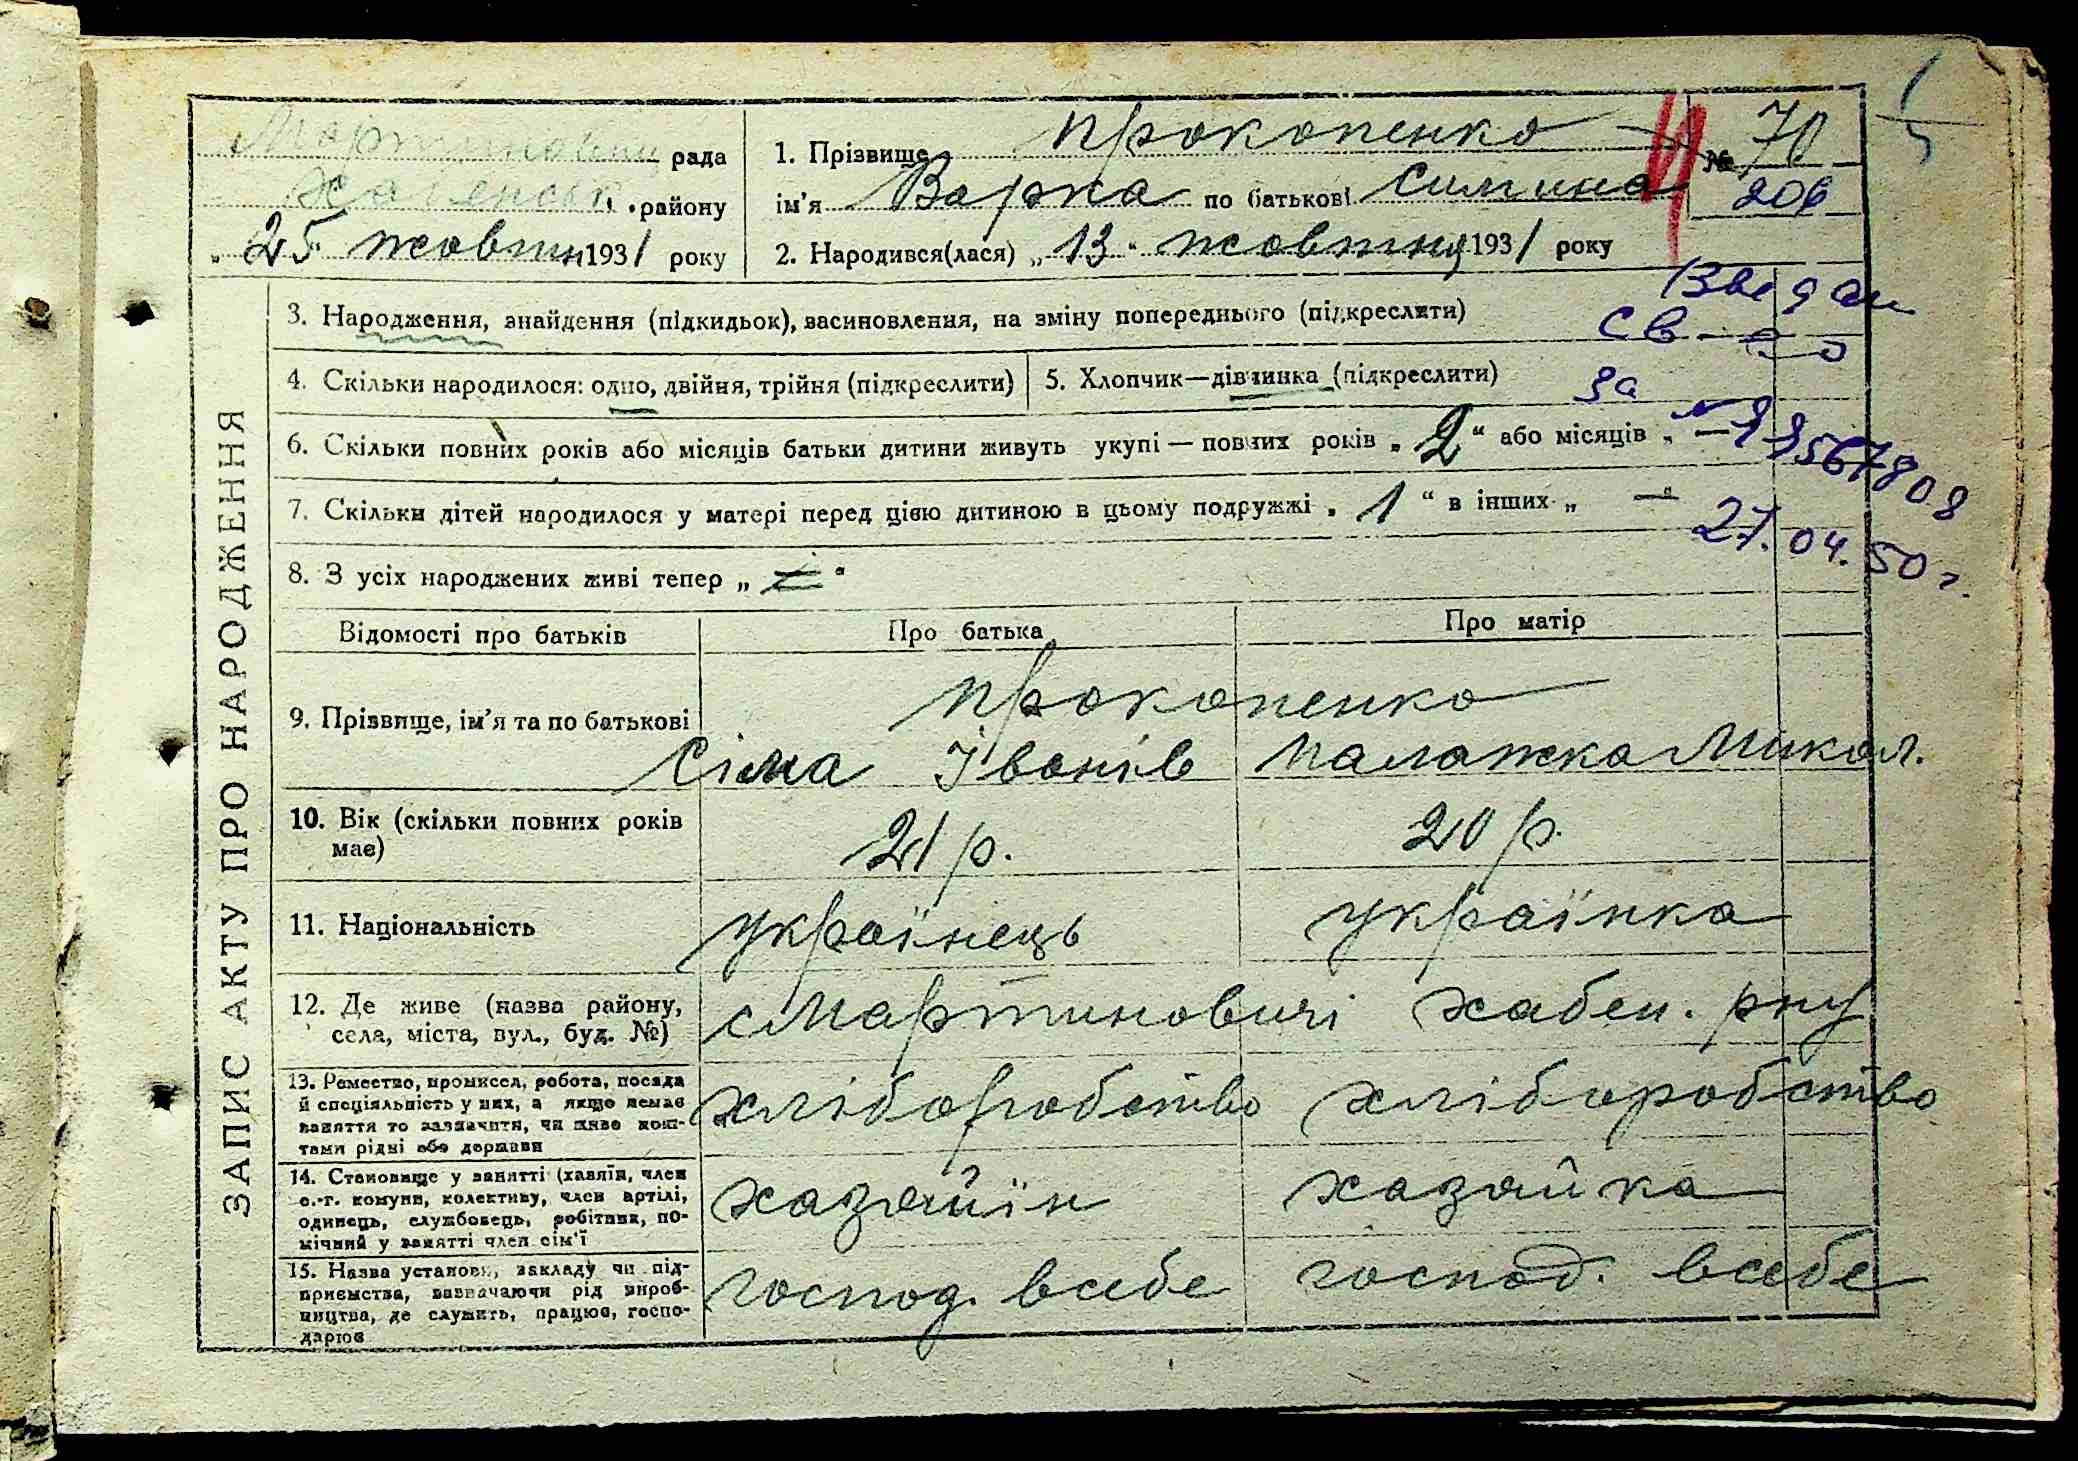 ЗАПИС АКТУ ПРО НАРОДЖЕННЯ
рада
району
„25“ жовтн 1931 року
1. Прізвище Прокопенко
ім’я Варка по батькові Симина
№ 70
206
2. Народився(лася) „13“ жовтня 1931 року
3. Народження, знайдення (підкидьок), васиновлення, на зміну попереднього (підкреслити)
св-о
за
27.04.50 г.
4. Скільки народилося: одно, двійня, трійня (підкреслити)
5. Хлопчик—дівчинка (підкреслити)
6. Скільки повних років або місяців батьки дитини живуть укупі — повних років „2“ або місяців „—
7. Скільки дітей народилося у матері перед цією дитиною в цьому подружжі „1“ в інших „—“
8. З усіх народжених живі тепер „
Відомості про батьків
Про батька
Про матір
9. Прізвище, ім’я та по батькові
Прокопенко
Сіма Іванів
Палажка Микол.
10. Вік (скільки повних років має)
21 р.
20 р.
11. Національність
українець
українка
12. Де живе (назва району, села, міста, вул., буд. №)
с Мартиновичі Хабен. рну
13. Ремество, промисел, робота, посада й спеціяльність у них, а якщо немає заняття то зазначити, чи живе коштами рідні або держави
хліборобство
хліборобство
14. Становище у занятті (хазяїн, член с.-г. комуни, колективу, член артілі, одинець, службовець, робітник, помічний у занятті член сім’ї
хазяйін
хазяйка
15. Назва установи, закладу чи підприємства, зазначаючи рід виробництва, де служить, працює, господарює
господ. всебе
господ. всебе